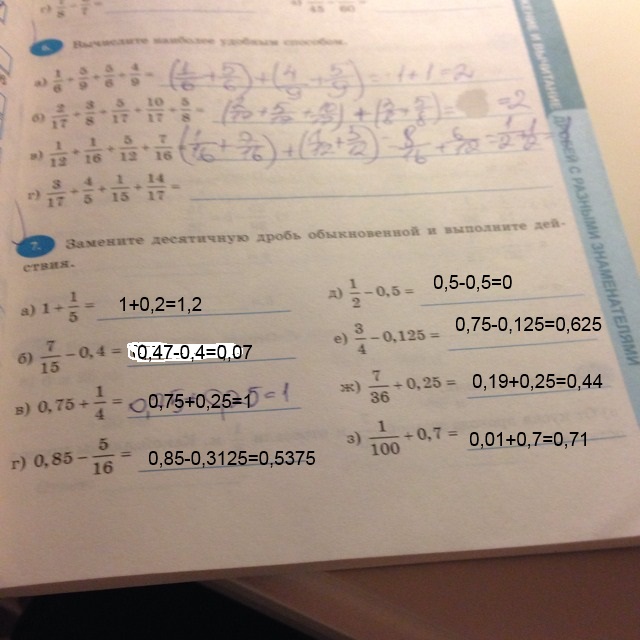 6. Вычислите наиболее удобным способом.
а) 1/6 + 5/9 + 5/6 + 4/9 = (1/6 + 5/6) + (4/9 + 5/9) = 1 + 1 = 2
б) 2/17 + 3/8 + 5/17 + 10/17 + 5/8 = = 2
в) 1/12 + 1/16 + 5/12 + 7/16
г) 3/17 + 4/5 + 1/15 + 14/17 =
7. Замените десятичную дробь обыкновенной и выполните дей-
ствия.
а) 1 + 1/5 = 1+0,2=1,2
б) 7/15 − 0,4 = 0,47-0,4=0,07
в) 0,75 + 1/4 = 0,75+0,25=1
г) 0,85 − 5/16 = 0,85-0,3125=0,5375
д) 1/2 − 0,5 = 0,5-0,5=0
е) 3/4 − 0,125 = 0,75-0,125=0,625
ж) 7/36 + 0,25 = 0,19+0,25=0,44
з) 1/100 + 0,7 = 0,01+0,7=0,71
С РАЗНЫМИ ЗНАМЕНАТЕЛЯМИ